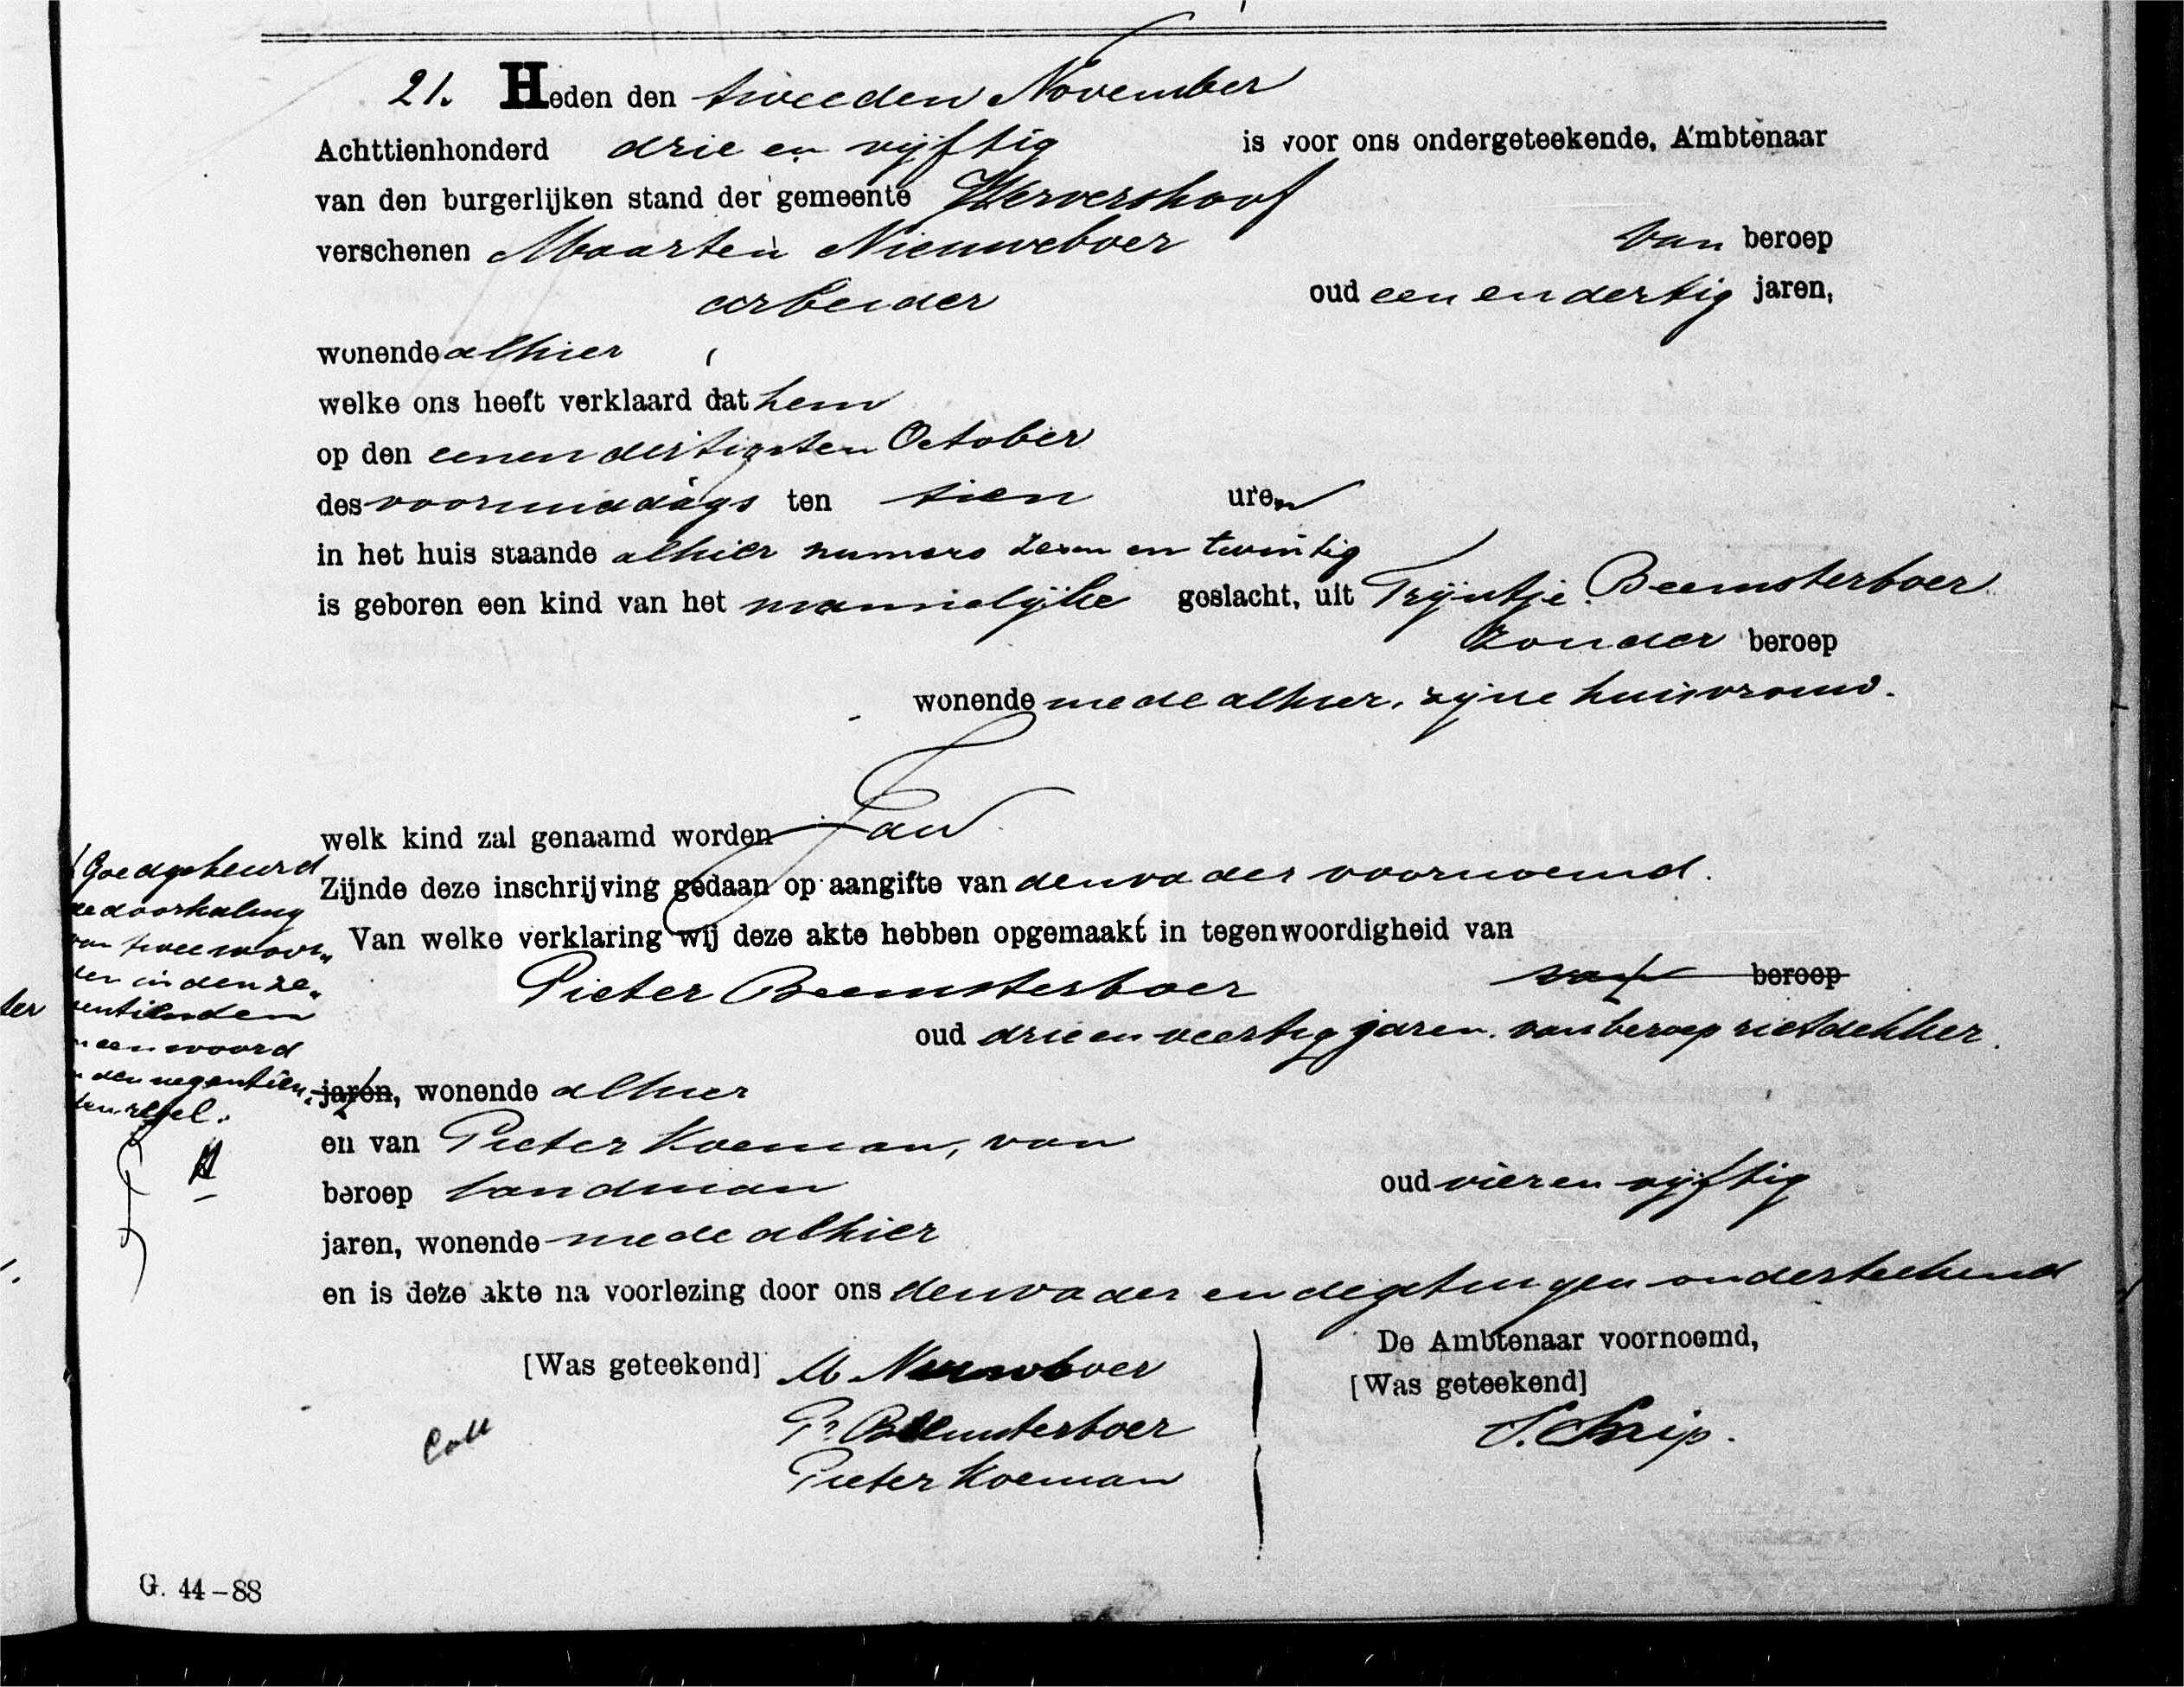 21. Heden den tweeden November
Achttienhonderd drie en vijftig is voor ons ondergeteekende, Ambtenaar
van den burgerlijken stand der gemeente Wervershoof
verschenen Maarten Nieuweboer van beroep
arbeider oud een en dertig jaren,
wonende alhier
welke ons heeft verklaard dat hem
op den eenen dertigsten October
des voormiddags ten tien uren
in het huis staande alhier numero zeven en twintig
is geboren een kind van het mannelijke geslacht, uit Trijntje Beemsterboer
zonder beroep
wonende mede alhier, zijne huisvrouw.
welk kind zal genaamd worden Jan
Zijnde deze inschrijving gedaan op aangifte van den vader voornoemd.
Van welke verklaring wij deze akte hebben opgemaakt in tegenwoordigheid van
Pieter Beemsterboer van beroep
oud drie en veertig jaren van beroep rietdekker.
jaren, wonende alhier
en van Pieter Koeman, van
beroep landman oud vier en vijftig
jaren, wonende mede alhier
en is deze akte na voorlezing door ons den vader en de getuigen onderteekend
[Was geteekend] M Nieuweboer
Pr Beemsterboer
Pieter Koeman
De Ambtenaar voornoemd,
[Was geteekend]
Coll
Goedgekeurd
de doorhaling
van twee woor„
den in den ze„
ventienden
en een woord
in den negentien„
den regel.
ter
G. 44–88